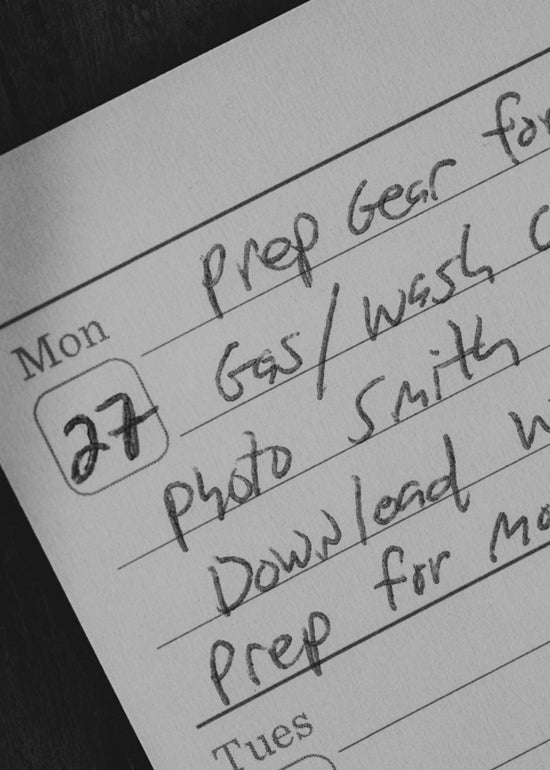 Prep Gear for
Mon
Gas/wash C
27
Photo Smith
Download w
Prep for Mo
Tues